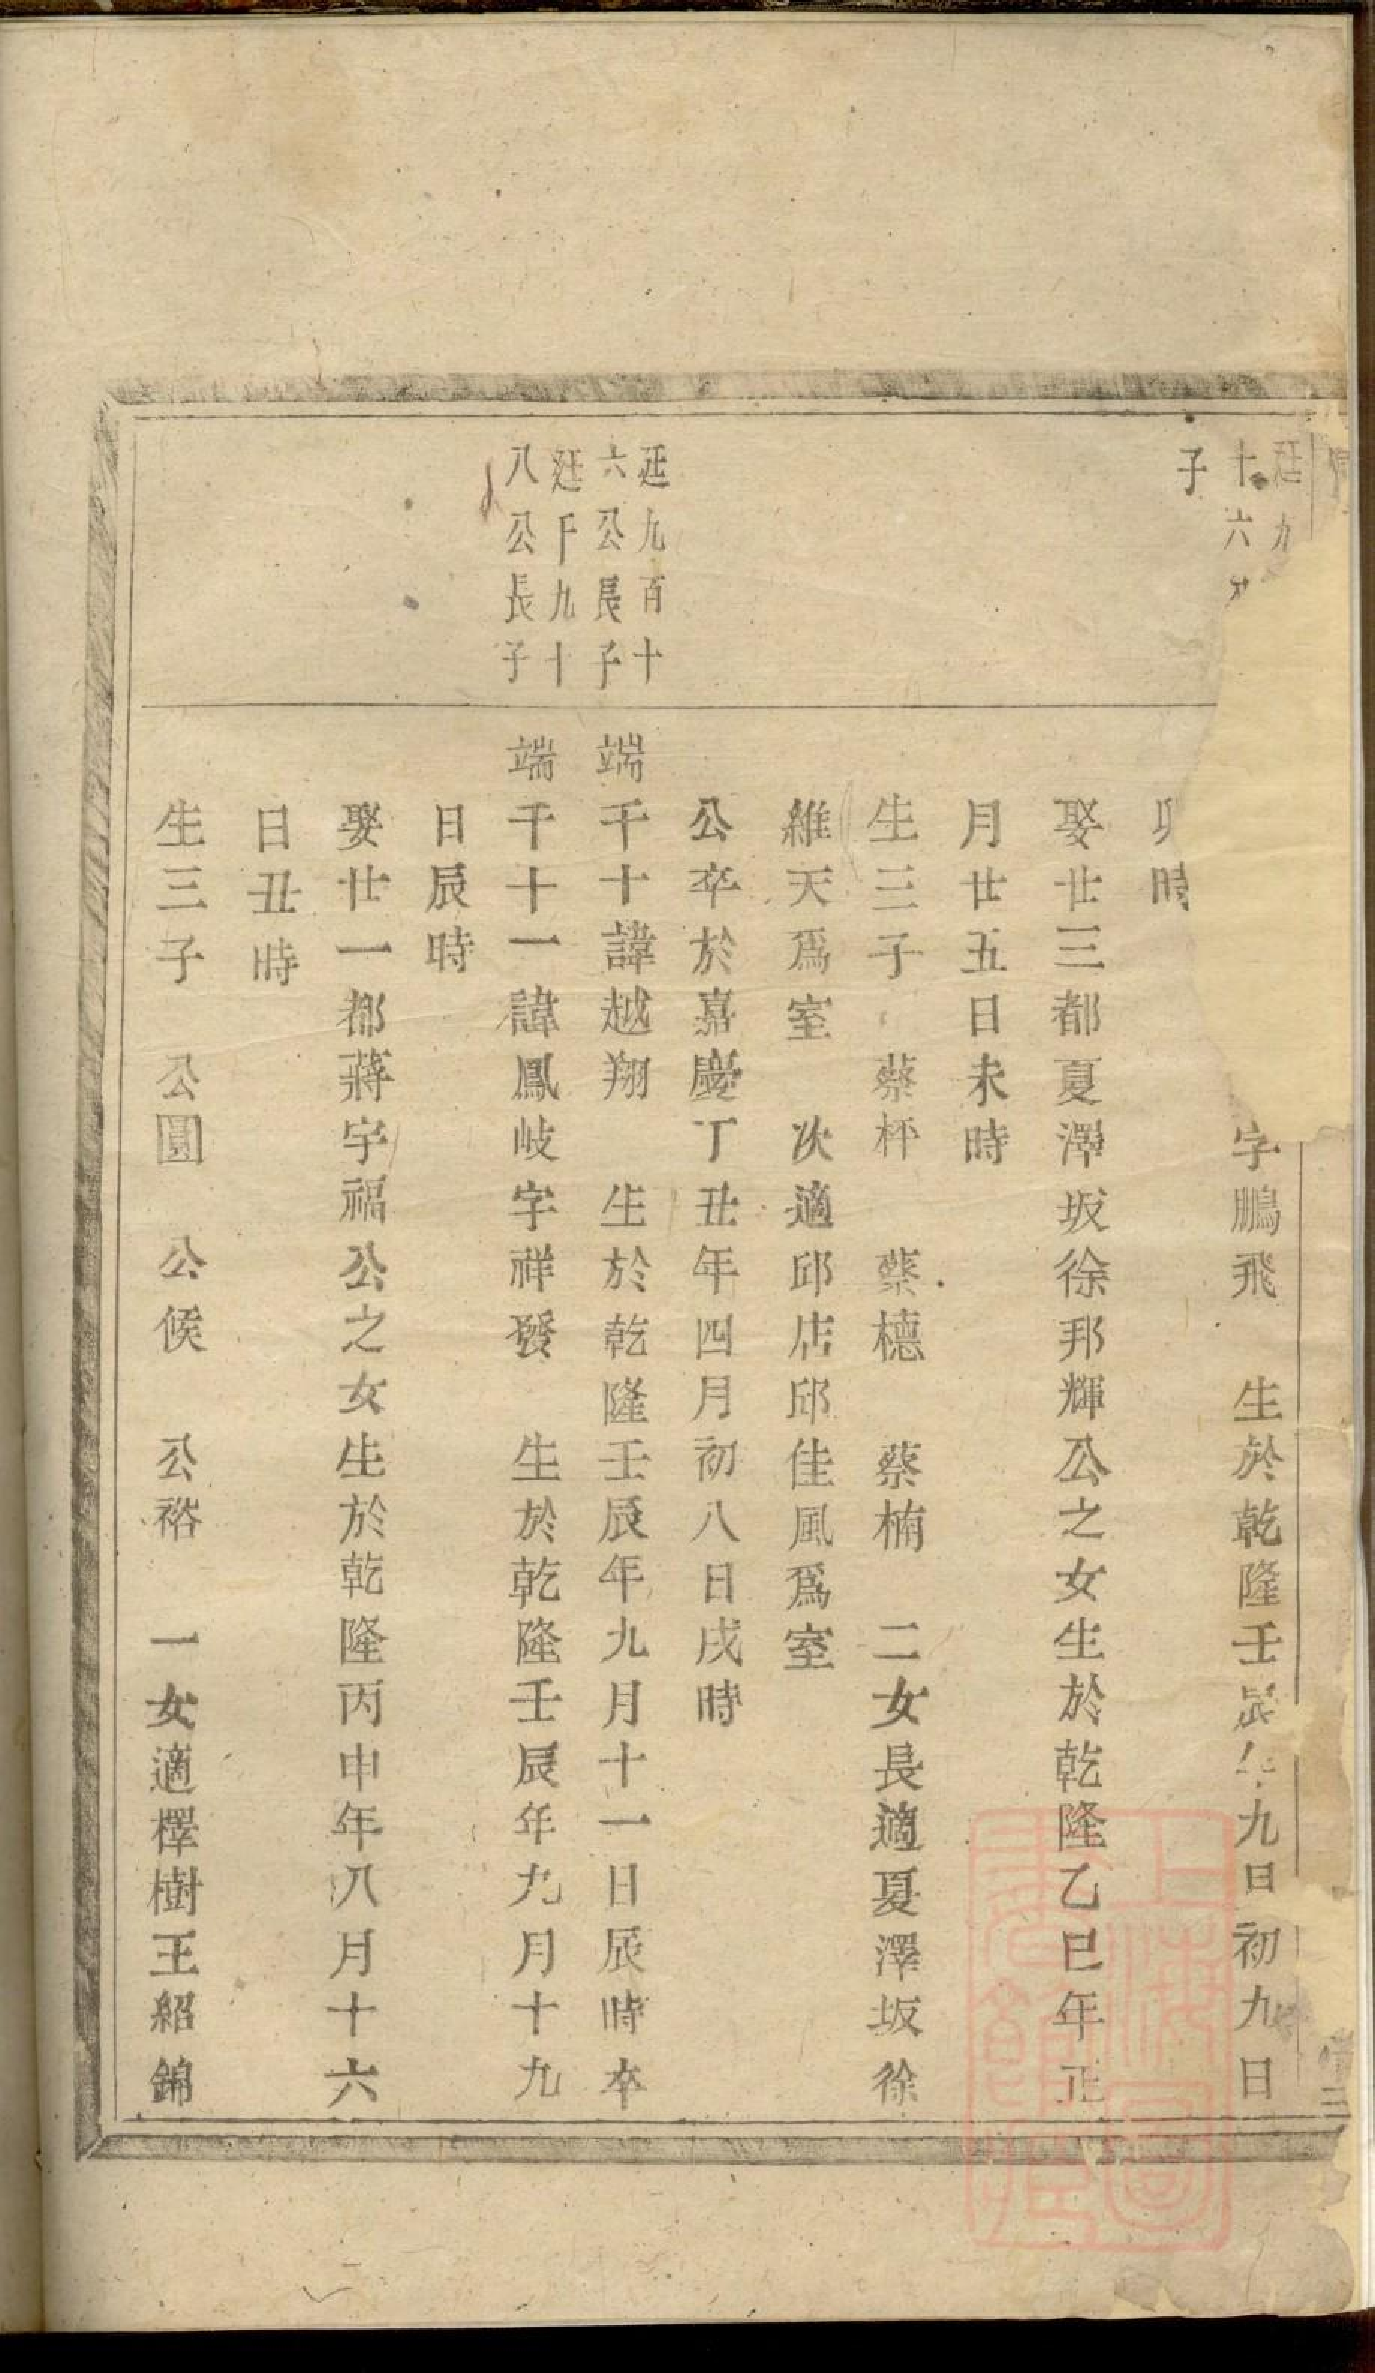 廷九
十六
子
字鵬飛　生於乾隆壬辰年九日初九日
卯時
娶廿三都夏澤坂徐邦輝公之女生於乾隆乙巳年正
月廿五日未時
生三子　蔡杯　蔡櫶　蔡楠　二女長適夏澤坂徐
維天爲室　次適邱店邱佳風爲室
公卒於嘉慶丁丑年四月初八日戌時
廷九百十
六公長子
端千十諱越翔　生於乾隆壬辰年九月十一日辰時卒
廷千九十
八公長子
端千十一諱鳳岐字祥發　生於乾隆壬辰年九月十九
日辰時
娶廿一都蔣宇福公之女生於乾隆丙申年八月十六
日丑時
生三子　公園　公候　公裕　一女適檡樹王紹錦
上海圖書館藏